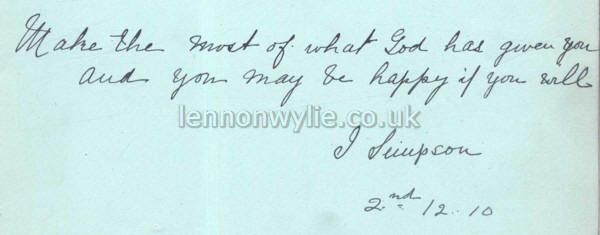 Make the most of what God has given you
and you may be happy if you will
lennonwylie.co.uk
J Simpson
2nd 12.10